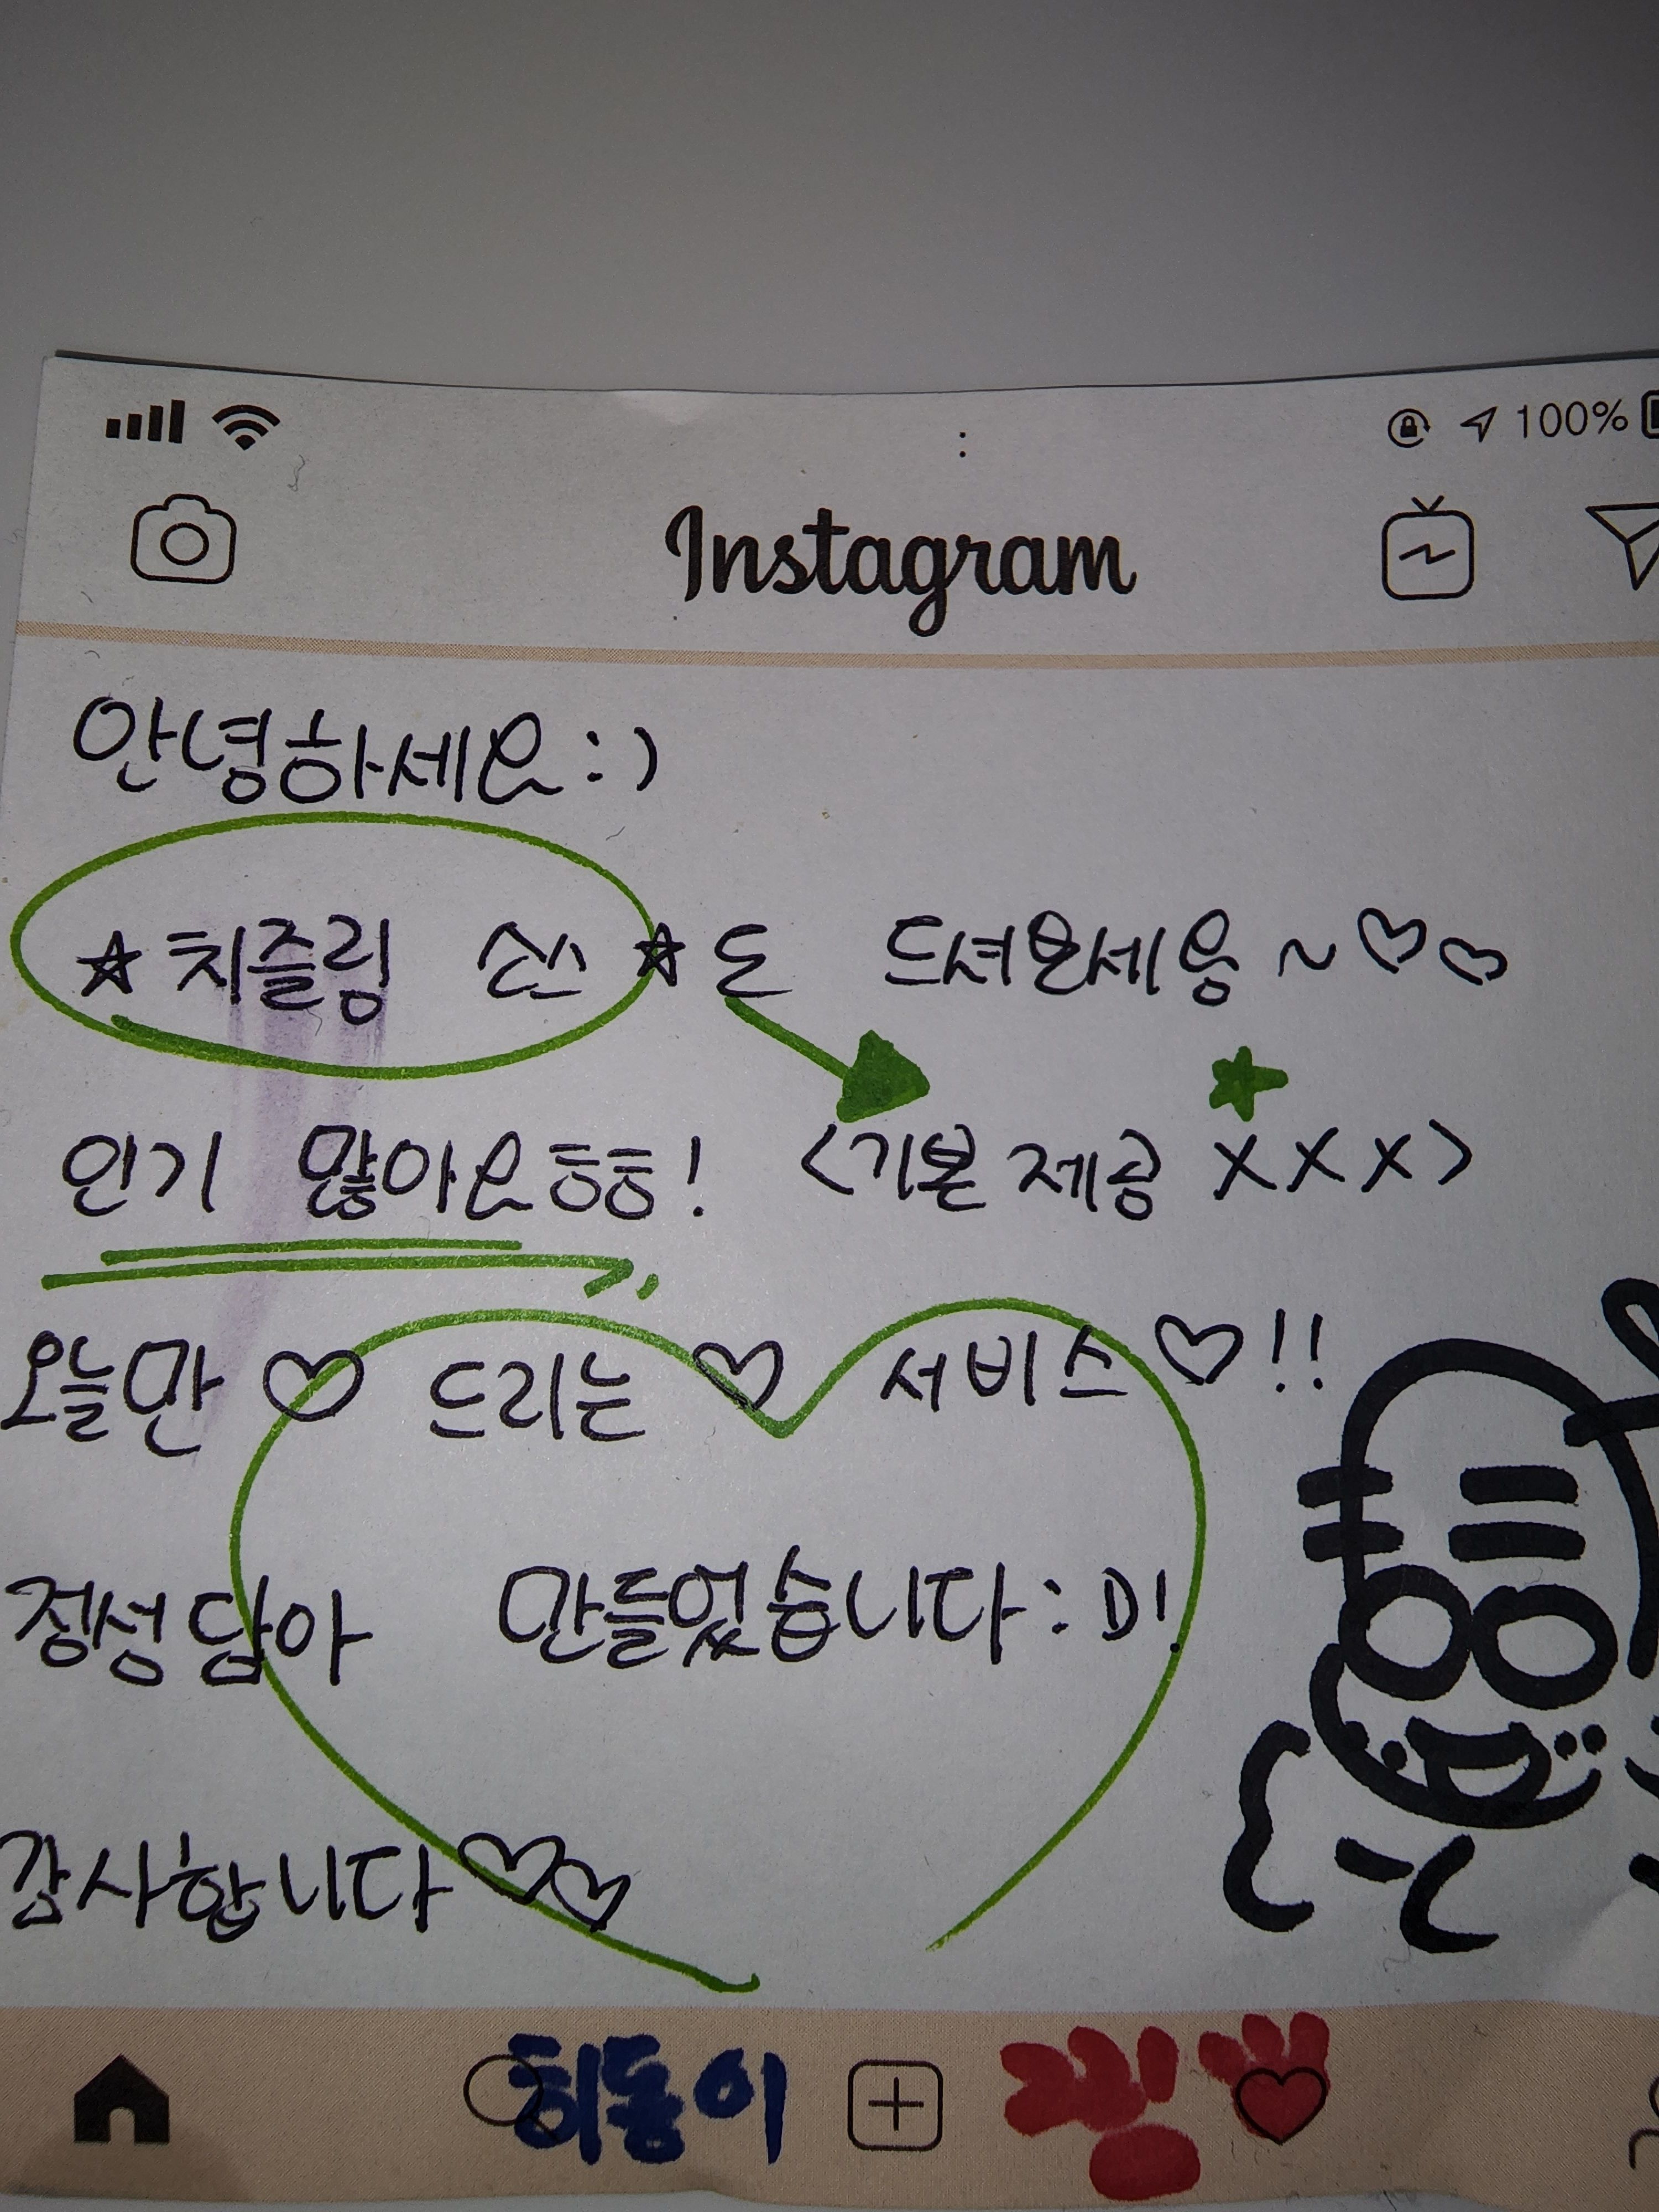 : 100%
Instagram
안녕하세요:)
☆치즐링 소스☆도 드셔보세용~♡♡
인기 많아요ㅎㅎ! <기본제공 XXX>
오늘만♡ 드리는♡ 서비스♡!!
정성담아 만들었습니다:D!
감사합니다♡♡
히동이